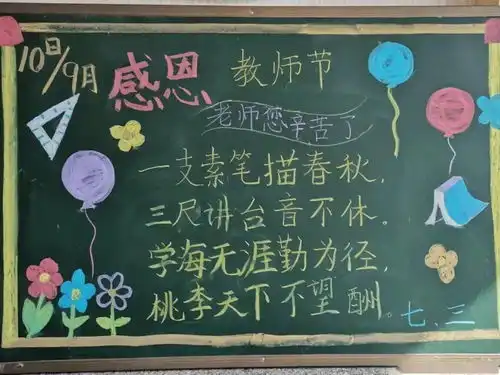 10日/9月
感恩 教师节
老师您辛苦了
一支素笔描春秋，
三尺讲台音不休。
学海无涯勤为径，
桃李天下不望酬。
七、三